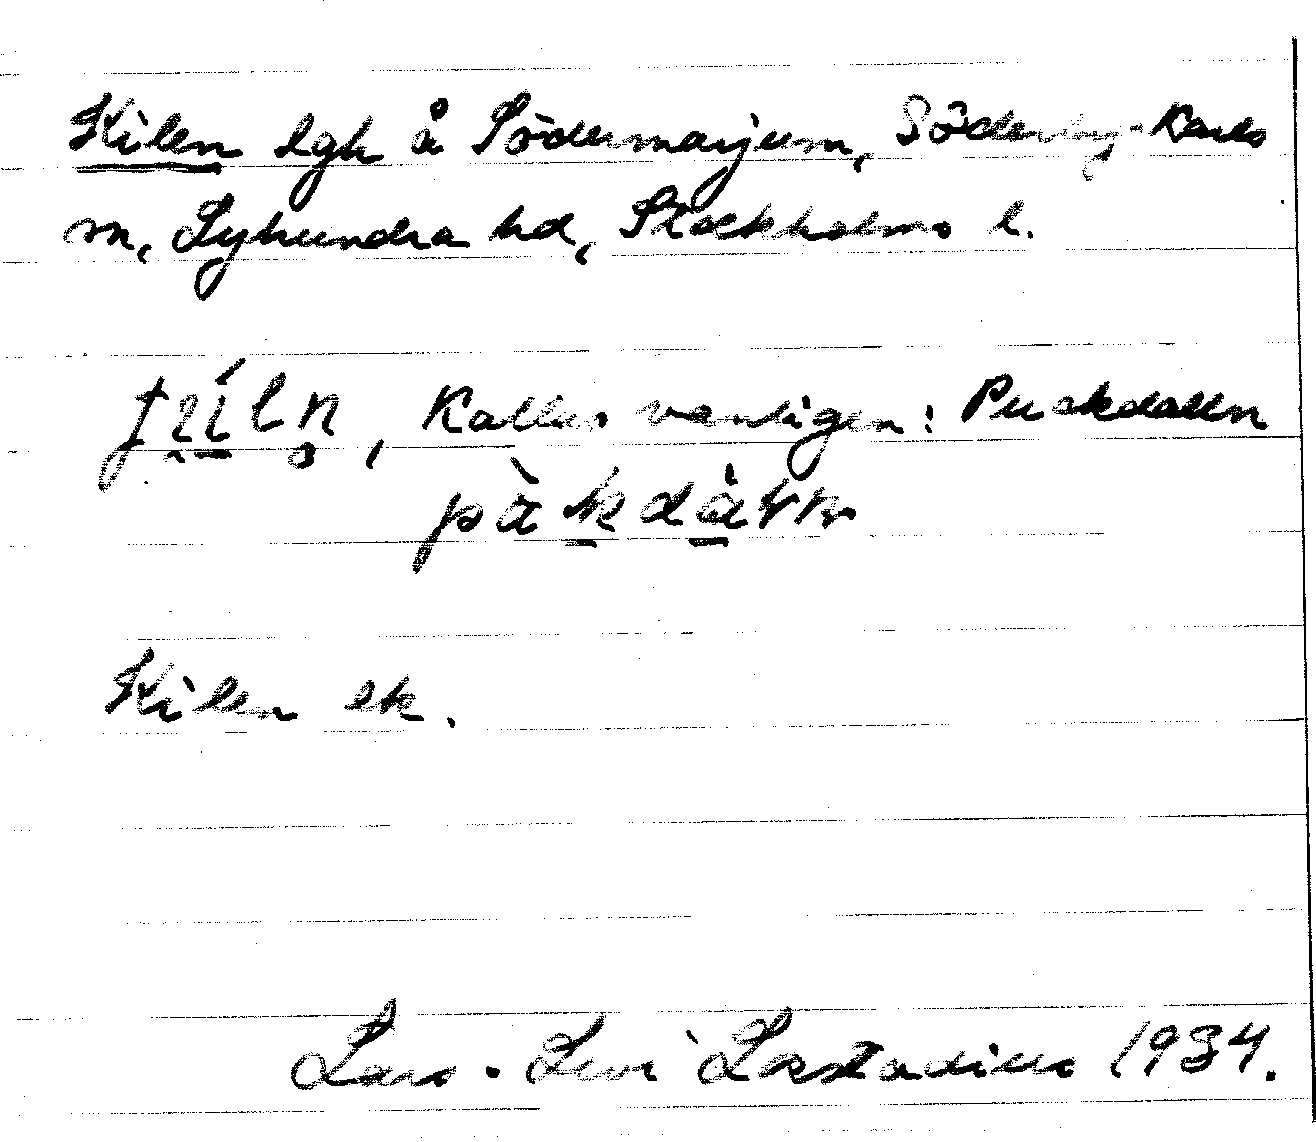 Kilen lgh å Södermarjum, Söderby-Karls
sn, Lyhundra hd, Stockholms l.
Kallas vanligen: Puckdalen
Kilen ek.
Lars-Levi Læstadius 1934.